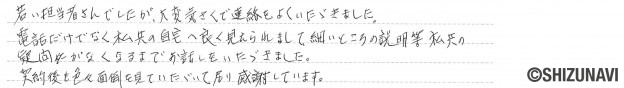 若い担当者さんでしたが、大変気さくで連絡をよくいただきました。
電話だけでなく私共の自宅へ良く見えられまして、細いところの説明等私共の
疑問点がなくなるまでお話しをいただきました。
契約後も色々面倒を見ていただいて居り感謝しています。
©SHIZUNAVI